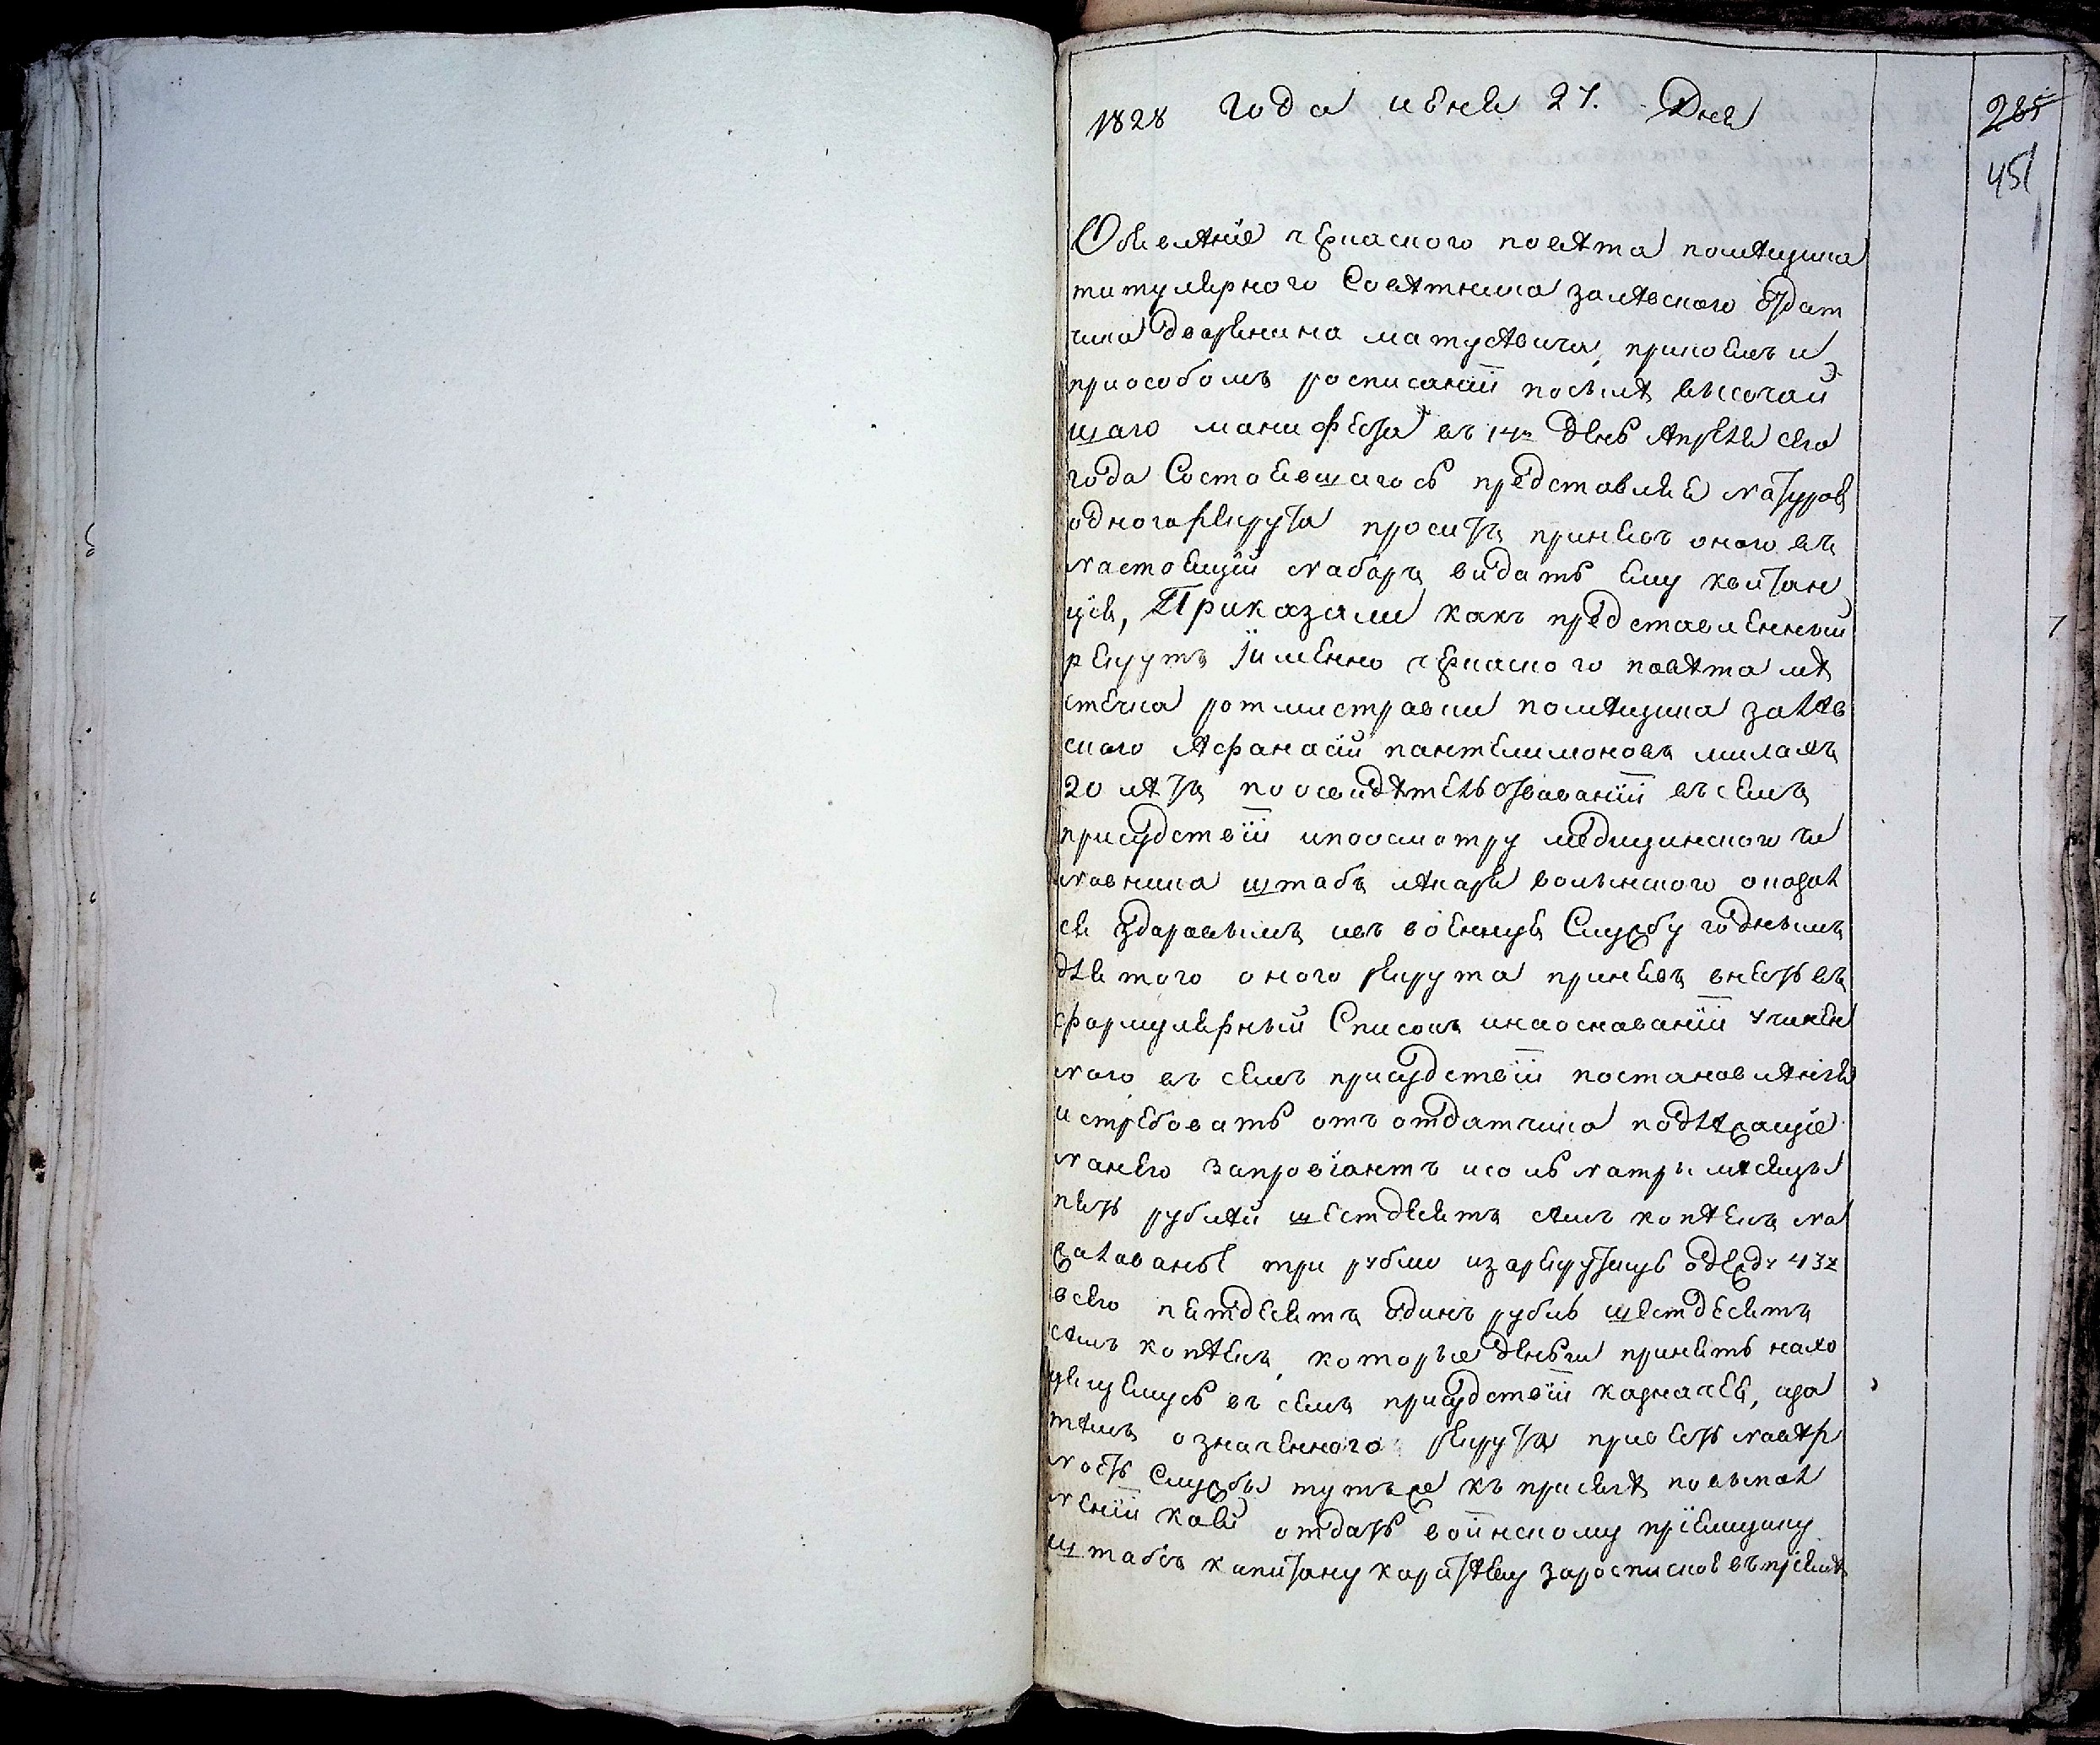 1828 года июня 27. Дня
285
451
Обявлѣние черкаского повѣта помѣщика
титулярного Советника залѣвского отдат
чика дворянина матусѣвича, при коемъ и
приособомъ росписании посылѣ высочай
шаго манифеста въ 14й день Апреля сего
года Состоявшагось представляя натурою
одного рекрута проситъ принявъ оного въ
настоящий наборъ видать ему квитан
цию, Приказали какъ представленный
рекрутъ Именно черкаского повѣта мѣ
стечка ротмистравки помѣщика залѣв
ского Афанасий пантелимоновъ милахъ
20 лѣтъ поосвидѣтельствовании въ семъ
присудствии ипоосмотру медицинского чи
новника штабъ лѣкаря волынского оказал
ся здоравымъ ивъ военную Службу годнымъ
для того оного рекрута принявъ внесть въ
формулярный Списокъ инаосновании учинен
ного въ семъ присудствии постановлѣния
истребовать отъ отдатчика подлѣжащие
нанего запровиантъ исоль натри мѣсяцы
пять рублѣй шестдесятъ сѣмъ копѣекъ на
жалованье три рубли изарекрутскую одежду 43 р
всего пятдесятъ одинъ рубль шестдесятъ
сѣмъ копѣекъ, которые деньги принять нахо
дящемусь въ семъ присудствии казначею, аза
тѣмъ означенного рекрута привесть навѣр
ность Службы тутъже къ присягѣ повыпол
нении коей отдать воинскому приемщику
штабсъ капитану каритѣеву заросписскою въприемѣ